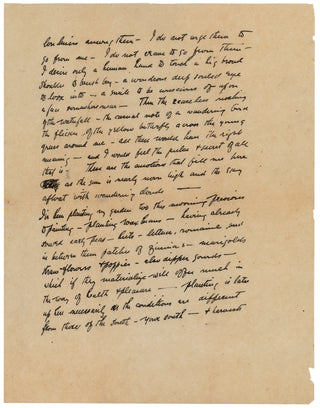 loneliness among them - I do not urge them to
go from me - I do not crave to go from them -
I desire only a human hand to touch a big broad
shoulder to brush by - a wondrous deep souled eye
to look into - a smile to be conscious of upon
a face somewhere - Then the ceaseless rushing
of the waterfall - the casual note of a wandering bird
the flicker of the yellow butterfly across the young
grass around me - all these would have the right
meaning - and I would feel the pulse & secret of all
that is - These are the emotions that fill me here
as the sun is nearly noon high and the sky
afloat with wandering clouds -
I've been planting my garden too this morning previous
to painting - planting beans - having already
sowed early peas - beets - lettuce, romaine and
in between them patches of zinnias - marigolds
straw flowers & poppies - also dipper gourds -
which if they materialize will offer much in
the way of health & pleasure - planting is later
up here necessarily as the conditions are different
from those of the South - your south - & harvests